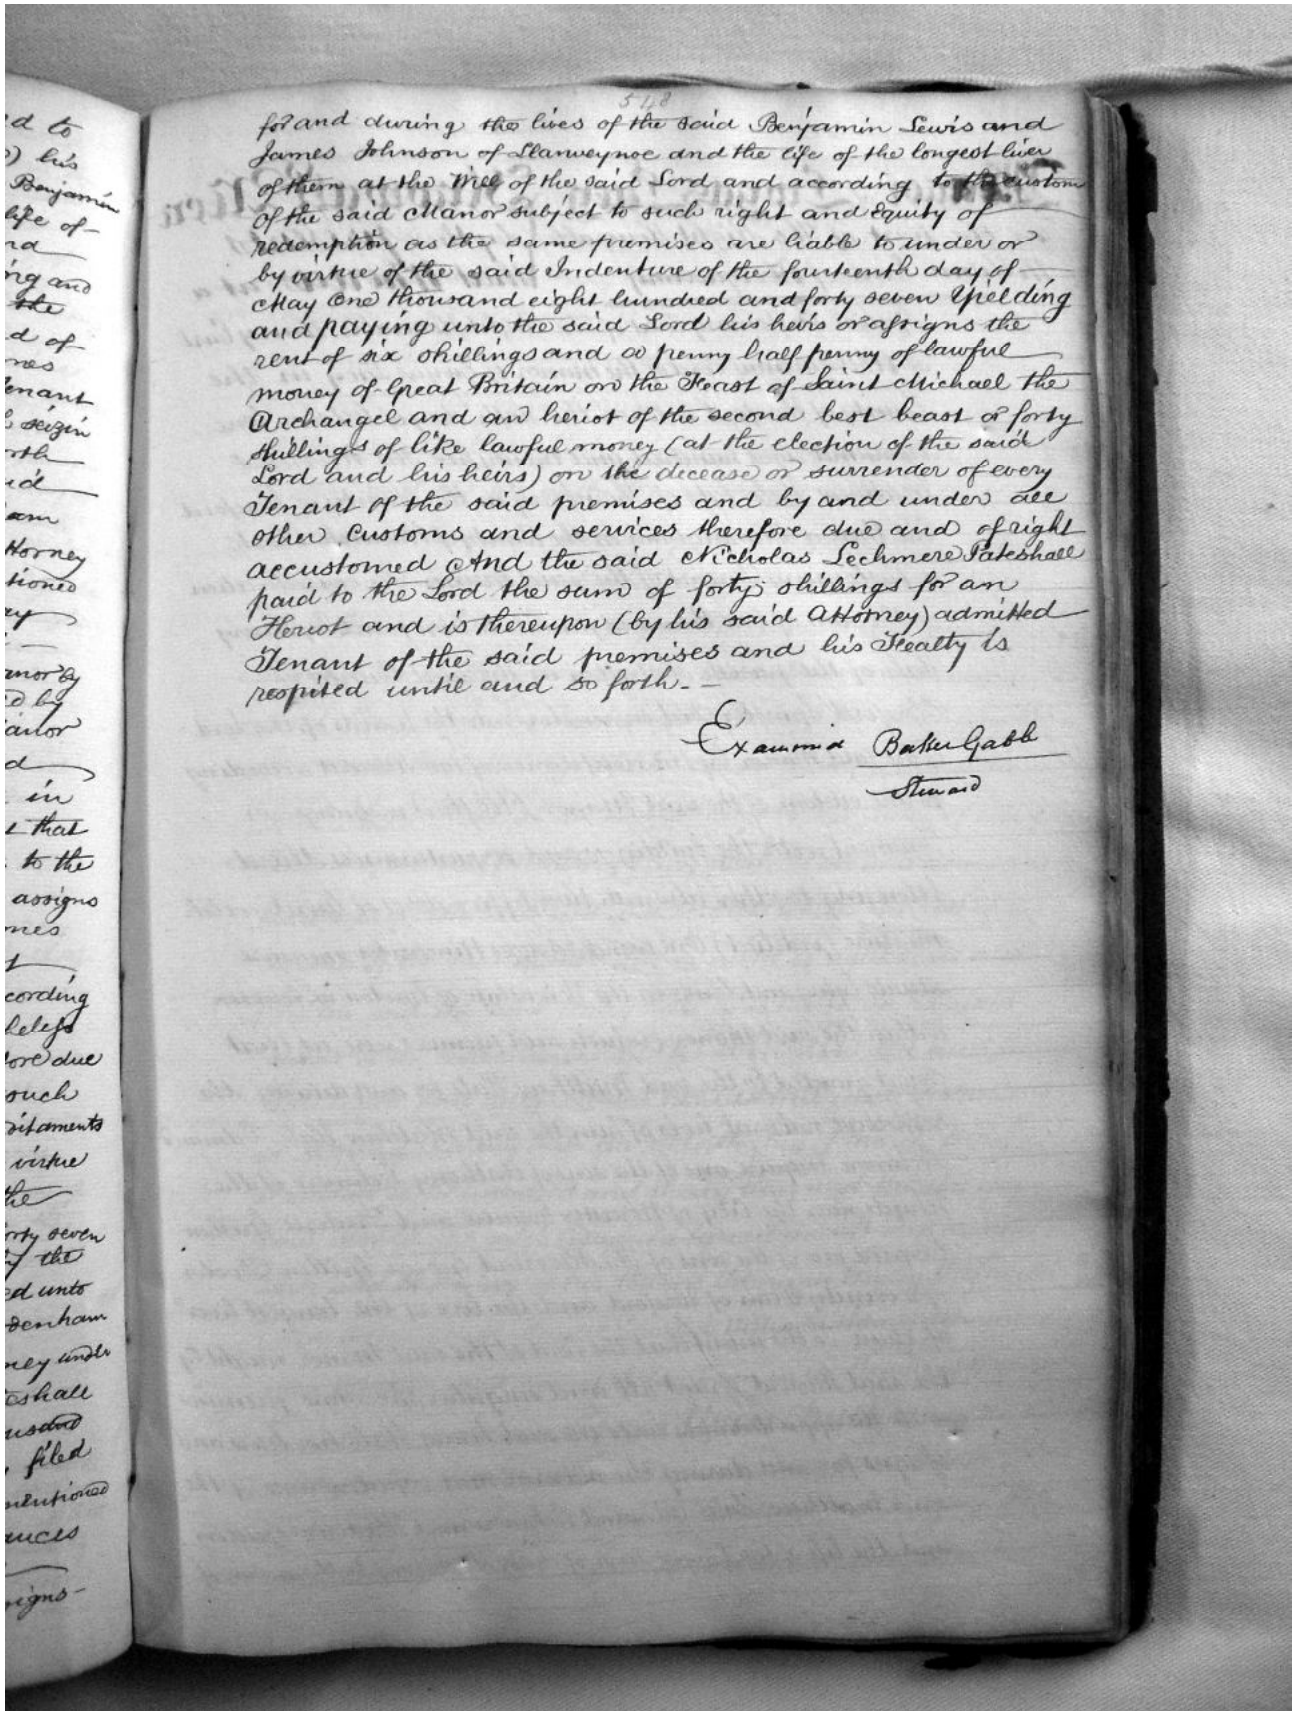 d to
) his
Benjamin
life of
nd
ing and
the
d of
ones
Tenant
seizin
orth
id
am
ttorney
tioned
ay
anor by
d by
anor
d
in
t that
to the
assigns
ones
t
cording
heless
fore due
such
ditaments
virtue
the
orty seven
by the
ed unto
denham
ney under
eshall
usand
filed
mentioned
ances
signs
548
for and during the lives of the said Benjamin Lewis and
James Johnson of Llanveynoe and the life of the longest liver
of them at the Will of the said Lord and according to the custom
of the said Manor subject to such right and Equity of
redemption as the same premises are liable to under or
by virtue of the said Indenture of the fourteenth day of
May One thousand eight hundred and forty seven Yielding
and paying unto the said Lord his heirs or assigns the
rent of six shillings and a penny half penny of lawful
money of Great Britain on the Feast of Saint Michael the
Archangel and an heriot of the second best beast or forty
shillings of like lawful money (at the election of the said
Lord and his heirs) on the decease or surrender of every
Tenant of the said premises and by and under all
other customs and services therefore due and of right
accustomed And the said Nicholas Lechmere Pateshall
paid to the Lord the sum of forty shillings for an
Heriot and is thereupon (by his said Attorney) admitted
Tenant of the said premises and his Fealty is
respited until and so forth. —
Examined Baker Gabb
Steward